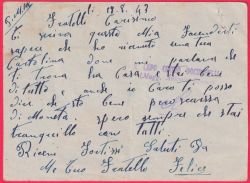 18.8.47
Fratello Carissimo
Ti scrivo questa Mia
sapere che ho ricevuto una tua
Cartolina dove mi parlava che
ti trovi ha Casa e stai bene
di tutto anche io Caro ti posso
dire che sto bene però scarsa
di Moneta. spero sempre che stai
tranquillo con tutti.
Ricevi Fortissi Saluti Da
Me Tuo Fratello Felice